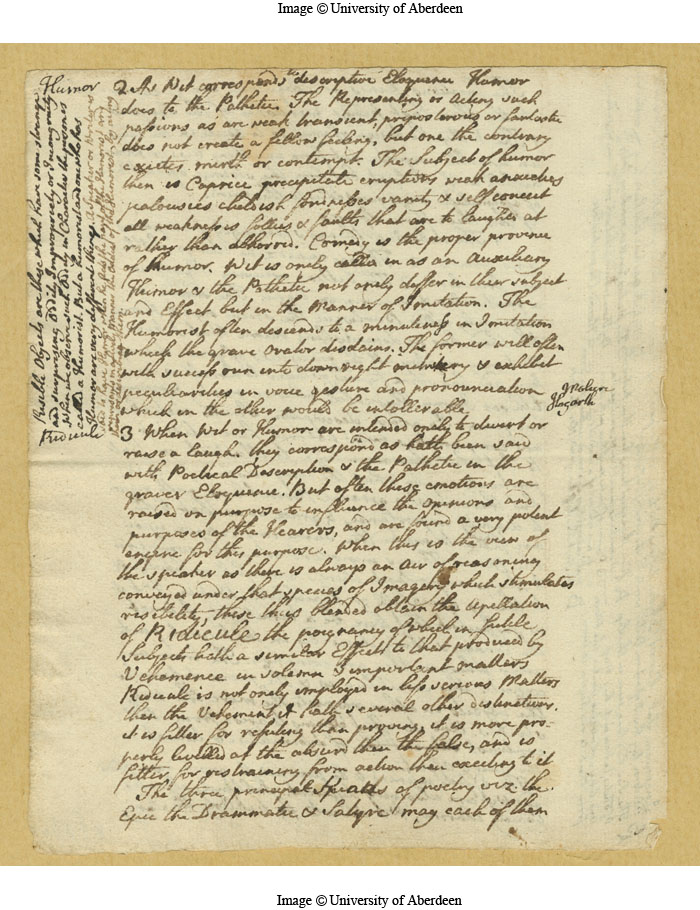 Image © University of Aberdeen
Humor
2 As Wit corresponds to descriptive Eloquence Humor
does to the Pathetic. The Representing or Acting such
passions as are weak transient, preposterous or fantastic
does not create a fellow feeling, but one the contrary
excites mirth or contempt. The Subject of humor
then is Caprice precipitate eruptions weak anxieties
jealousies childish fondnesses vanity & self conceit
all weakness is follies & faults that are to laughed at
rather than abhorred. Comedy is the proper province
of humor. Wit is onely calld in as an Auxiliary
Humor & the Pathetic not onely differ in their subject
and Effect but in the Manner of Imitation. The
Humorist often descends to a minuteness in Imitation
which the grave Orator disdains. The former will often
with success run into downright mimickry & exhibit
peculiarities in voice gesture and pronounciation
which in the other would be intollerable
Moliere
Hogarth
Risible Objects are these which have some strange
and surprizing Oddity Impropriety or Incongruity
When we observe such Oddity in Character the person is
called a Humorist. But a humorist and one who has
Humor are very different things.
Ridicule
3 When Wit or Humor are intended onely to divert or
raise a laugh they correspond as hath been said
with Poetical Description & the Pathetic in the
graver Eloquence. But often these emotions are
raised on purpose to influence the opinions and
purposes of the Hearers, and are found a very potent
engine for this purpose. When this is the view of
the speaker as there is always an air of reasoning
conveyed under that species of Imagery which stimulates
risibility, these thus blended obtain the apellation
of Ridicule the poignancy of which in futile
Subjects hath a similar Effect to that produced by
Vehemence in solemn & important matters
Ridicule is not onely employed in less serious Matters
then the Vehement it hath several other distinctions.
it is fitter for refuting than proving, it is more pro-
perly levelled at the absurd then the false, and is
fitter for restraining from action then exciting to it
The three principal of poetry viz the
Epic the Drammatic & Satyre may each of them
Image © University of Aberdeen